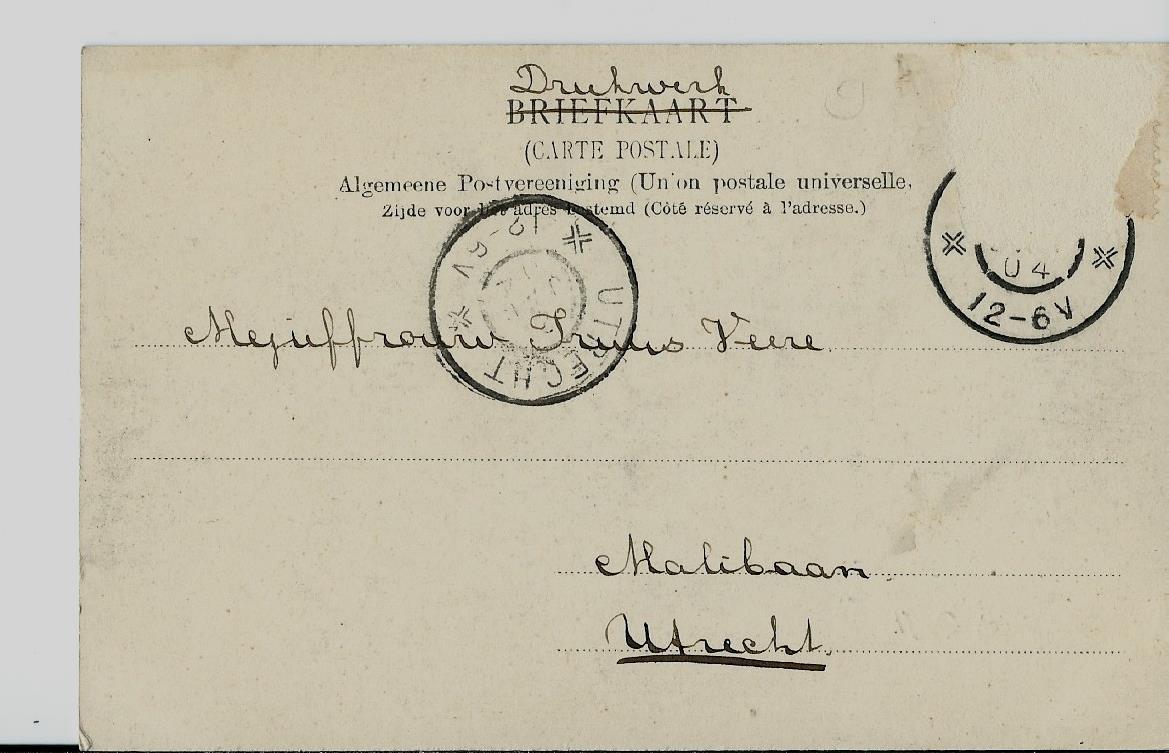 Drukwerk
BRIEFKAART
(CARTE POSTALE)
Algemeene Postvereeniging (Union postale universelle,
Zijde voor het adres bestemd (Côté réservé à l'adresse.)
UTRECHT
12-6V
04
12-6V
Mejuffrouw Truus Veere
Malibaan
Utrecht.